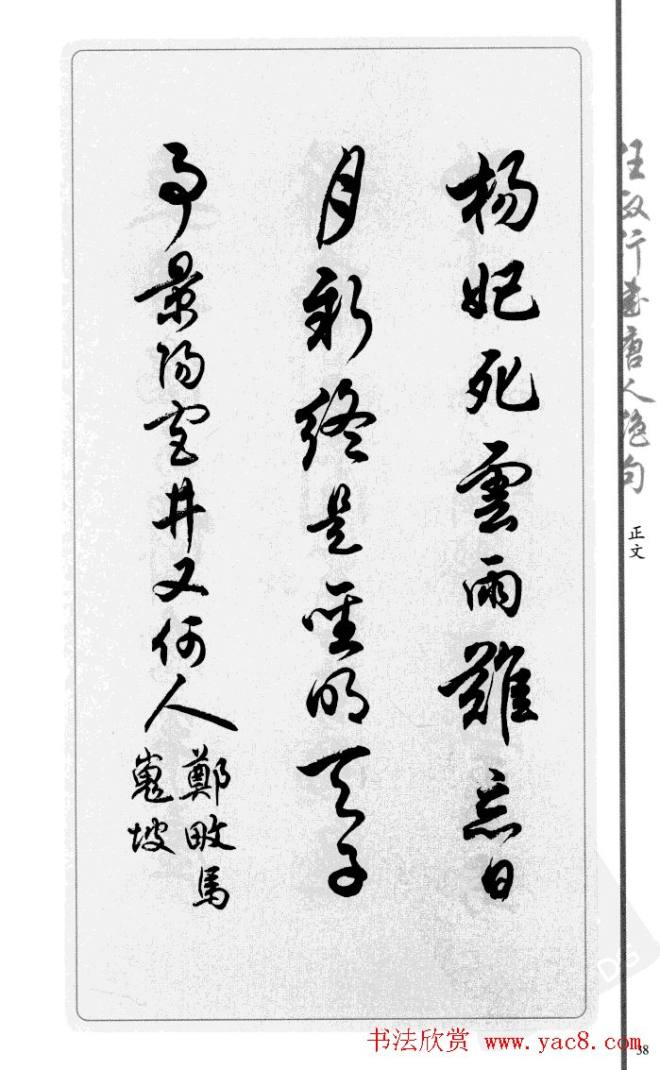 楊妃死雲雨難忘日
月新終是聖明天子
事景陽宮井又何人
鄭畋馬
嵬坡
任政行書唐人絶句
正文
书法欣赏 www.yac8.com
38
DG